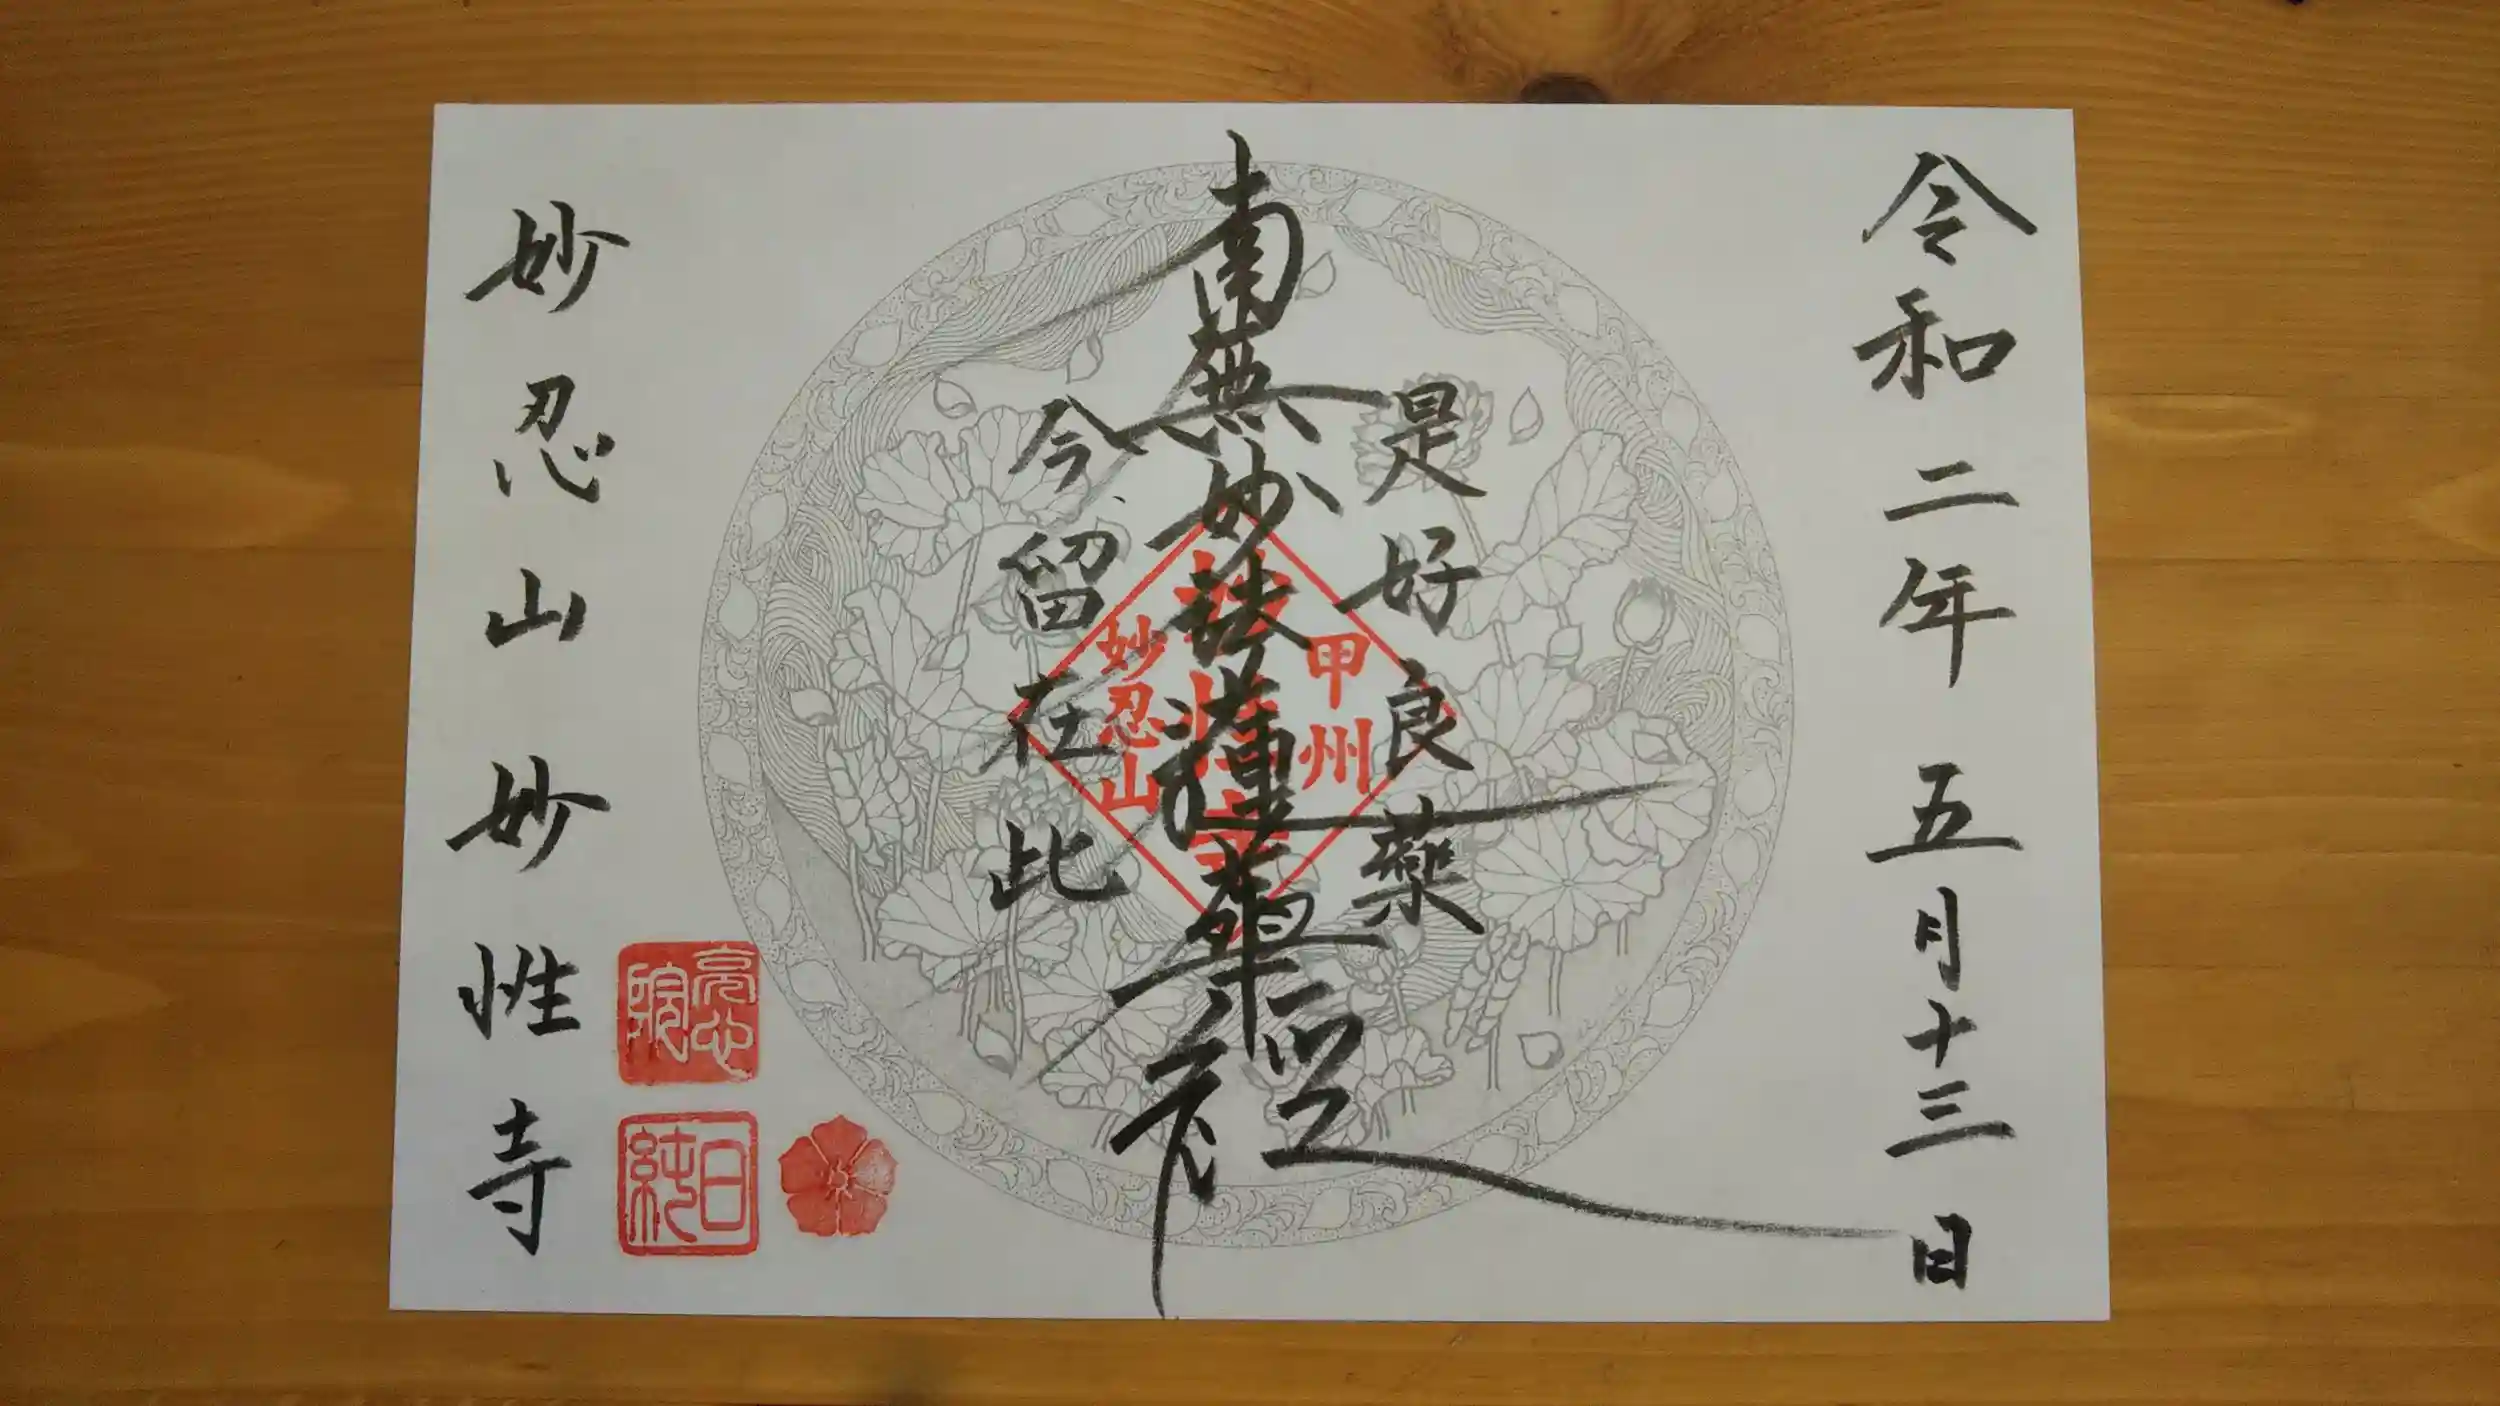 令和二年 五月十三日
是好良薬
南無妙法蓮華経
今留在此
甲州
妙性寺
妙忍山
妙忍山 妙性寺
亮心院
日純